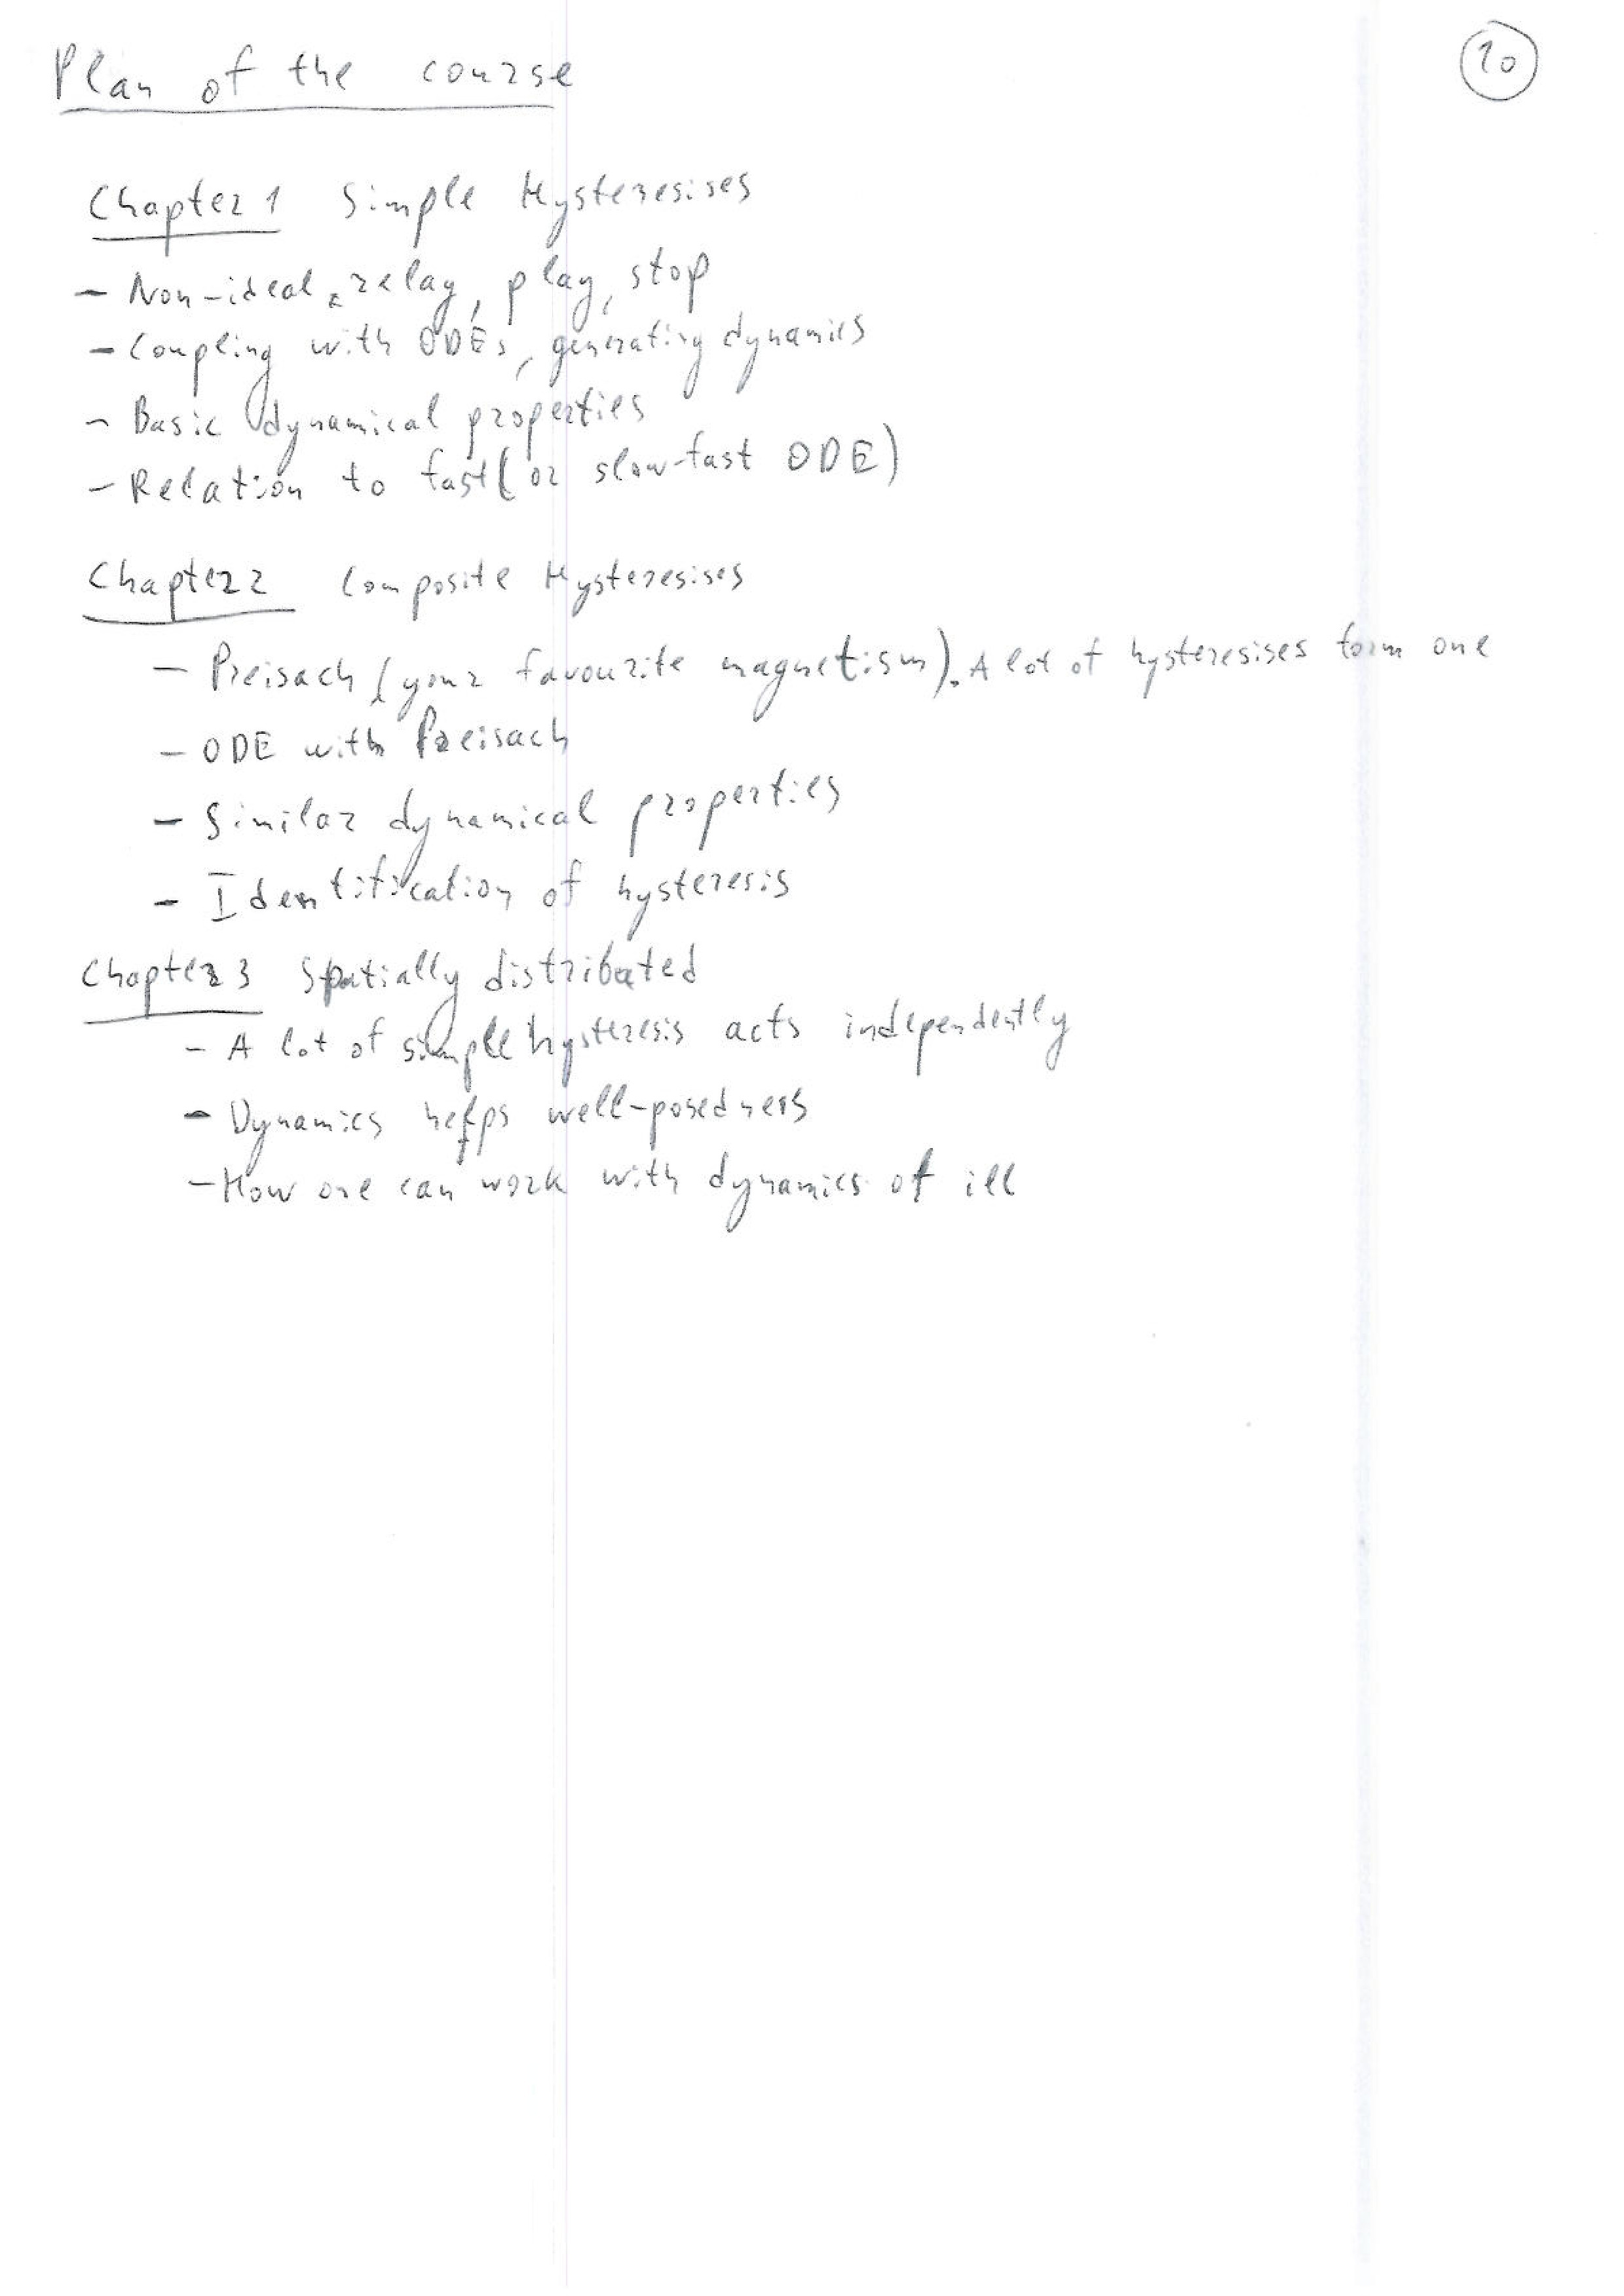 Plan of the course
10
Chapter 1 Simple Hysteresises
- Non-ideal relay, play, stop
- Coupling with ODEs, generating dynamics
- Basic dynamical properties
- Relation to fast (or slow-fast ODE)
Chapter 2 Composite Hysteresises
- Preisach (your favourite magnetism). A lot of hysteresises form one
- ODE with Preisach
- Similar dynamical properties
- Identification of hysteresis
Chapter 3 Spatially distributed
- A lot of simple hysteresis acts independently
- Dynamics helps well-posedness
- How one can work with dynamics of ill